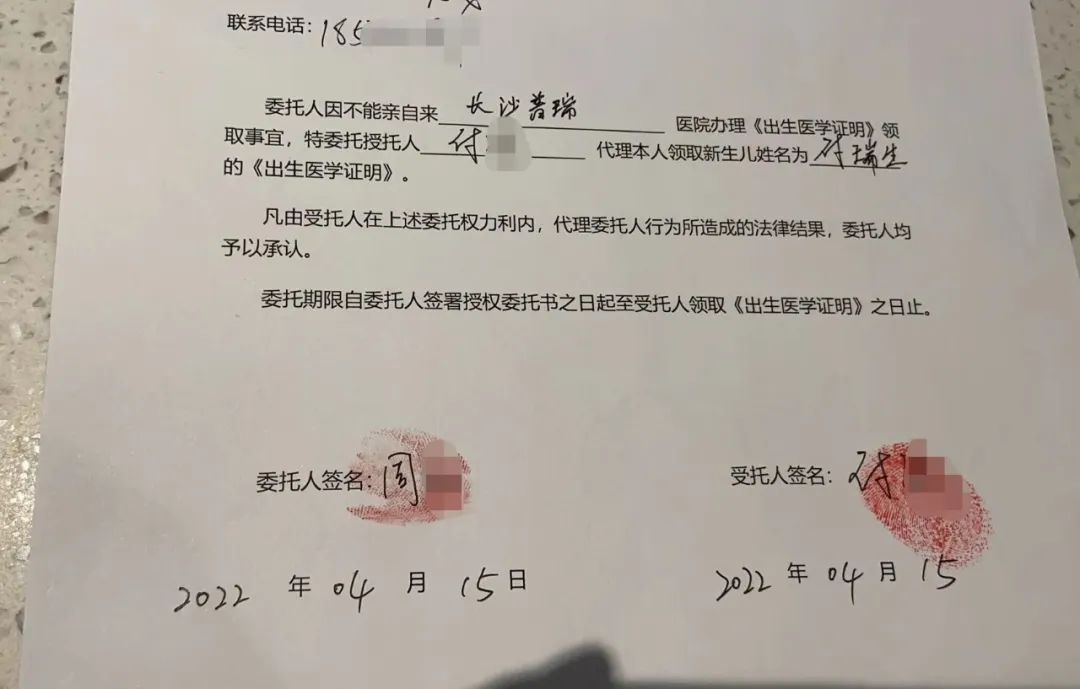 联系电话：185
委托人因不能亲自来 长沙普瑞 医院办理《出生医学证明》领
取事宜，特委托授托人 付 代理本人领取新生儿姓名为 付瑞生
的《出生医学证明》。
凡由受托人在上述委托权力利内，代理委托人行为所造成的法律结果，委托人均
予以承认。
委托期限自委托人签署授权委托书之日起至受托人领取《出生医学证明》之日止。
委托人签名：周 受托人签名：付
2022 年 04 月 15 日 2022 年 04 月 15